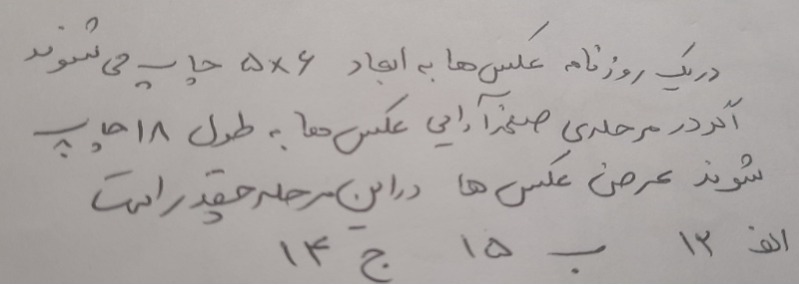 در یک روزنامه عکس‌ها به ابعاد ۵×۶ چاپ می‌شوند
اگر در مرحله‌ی صفحه‌آرایی عکس‌ها به طول ۱۸ چاپ
شوند عرض عکس‌ها در این مرحله چقدر است
الف ۱۲ ب ۱۵ ج ۱۴